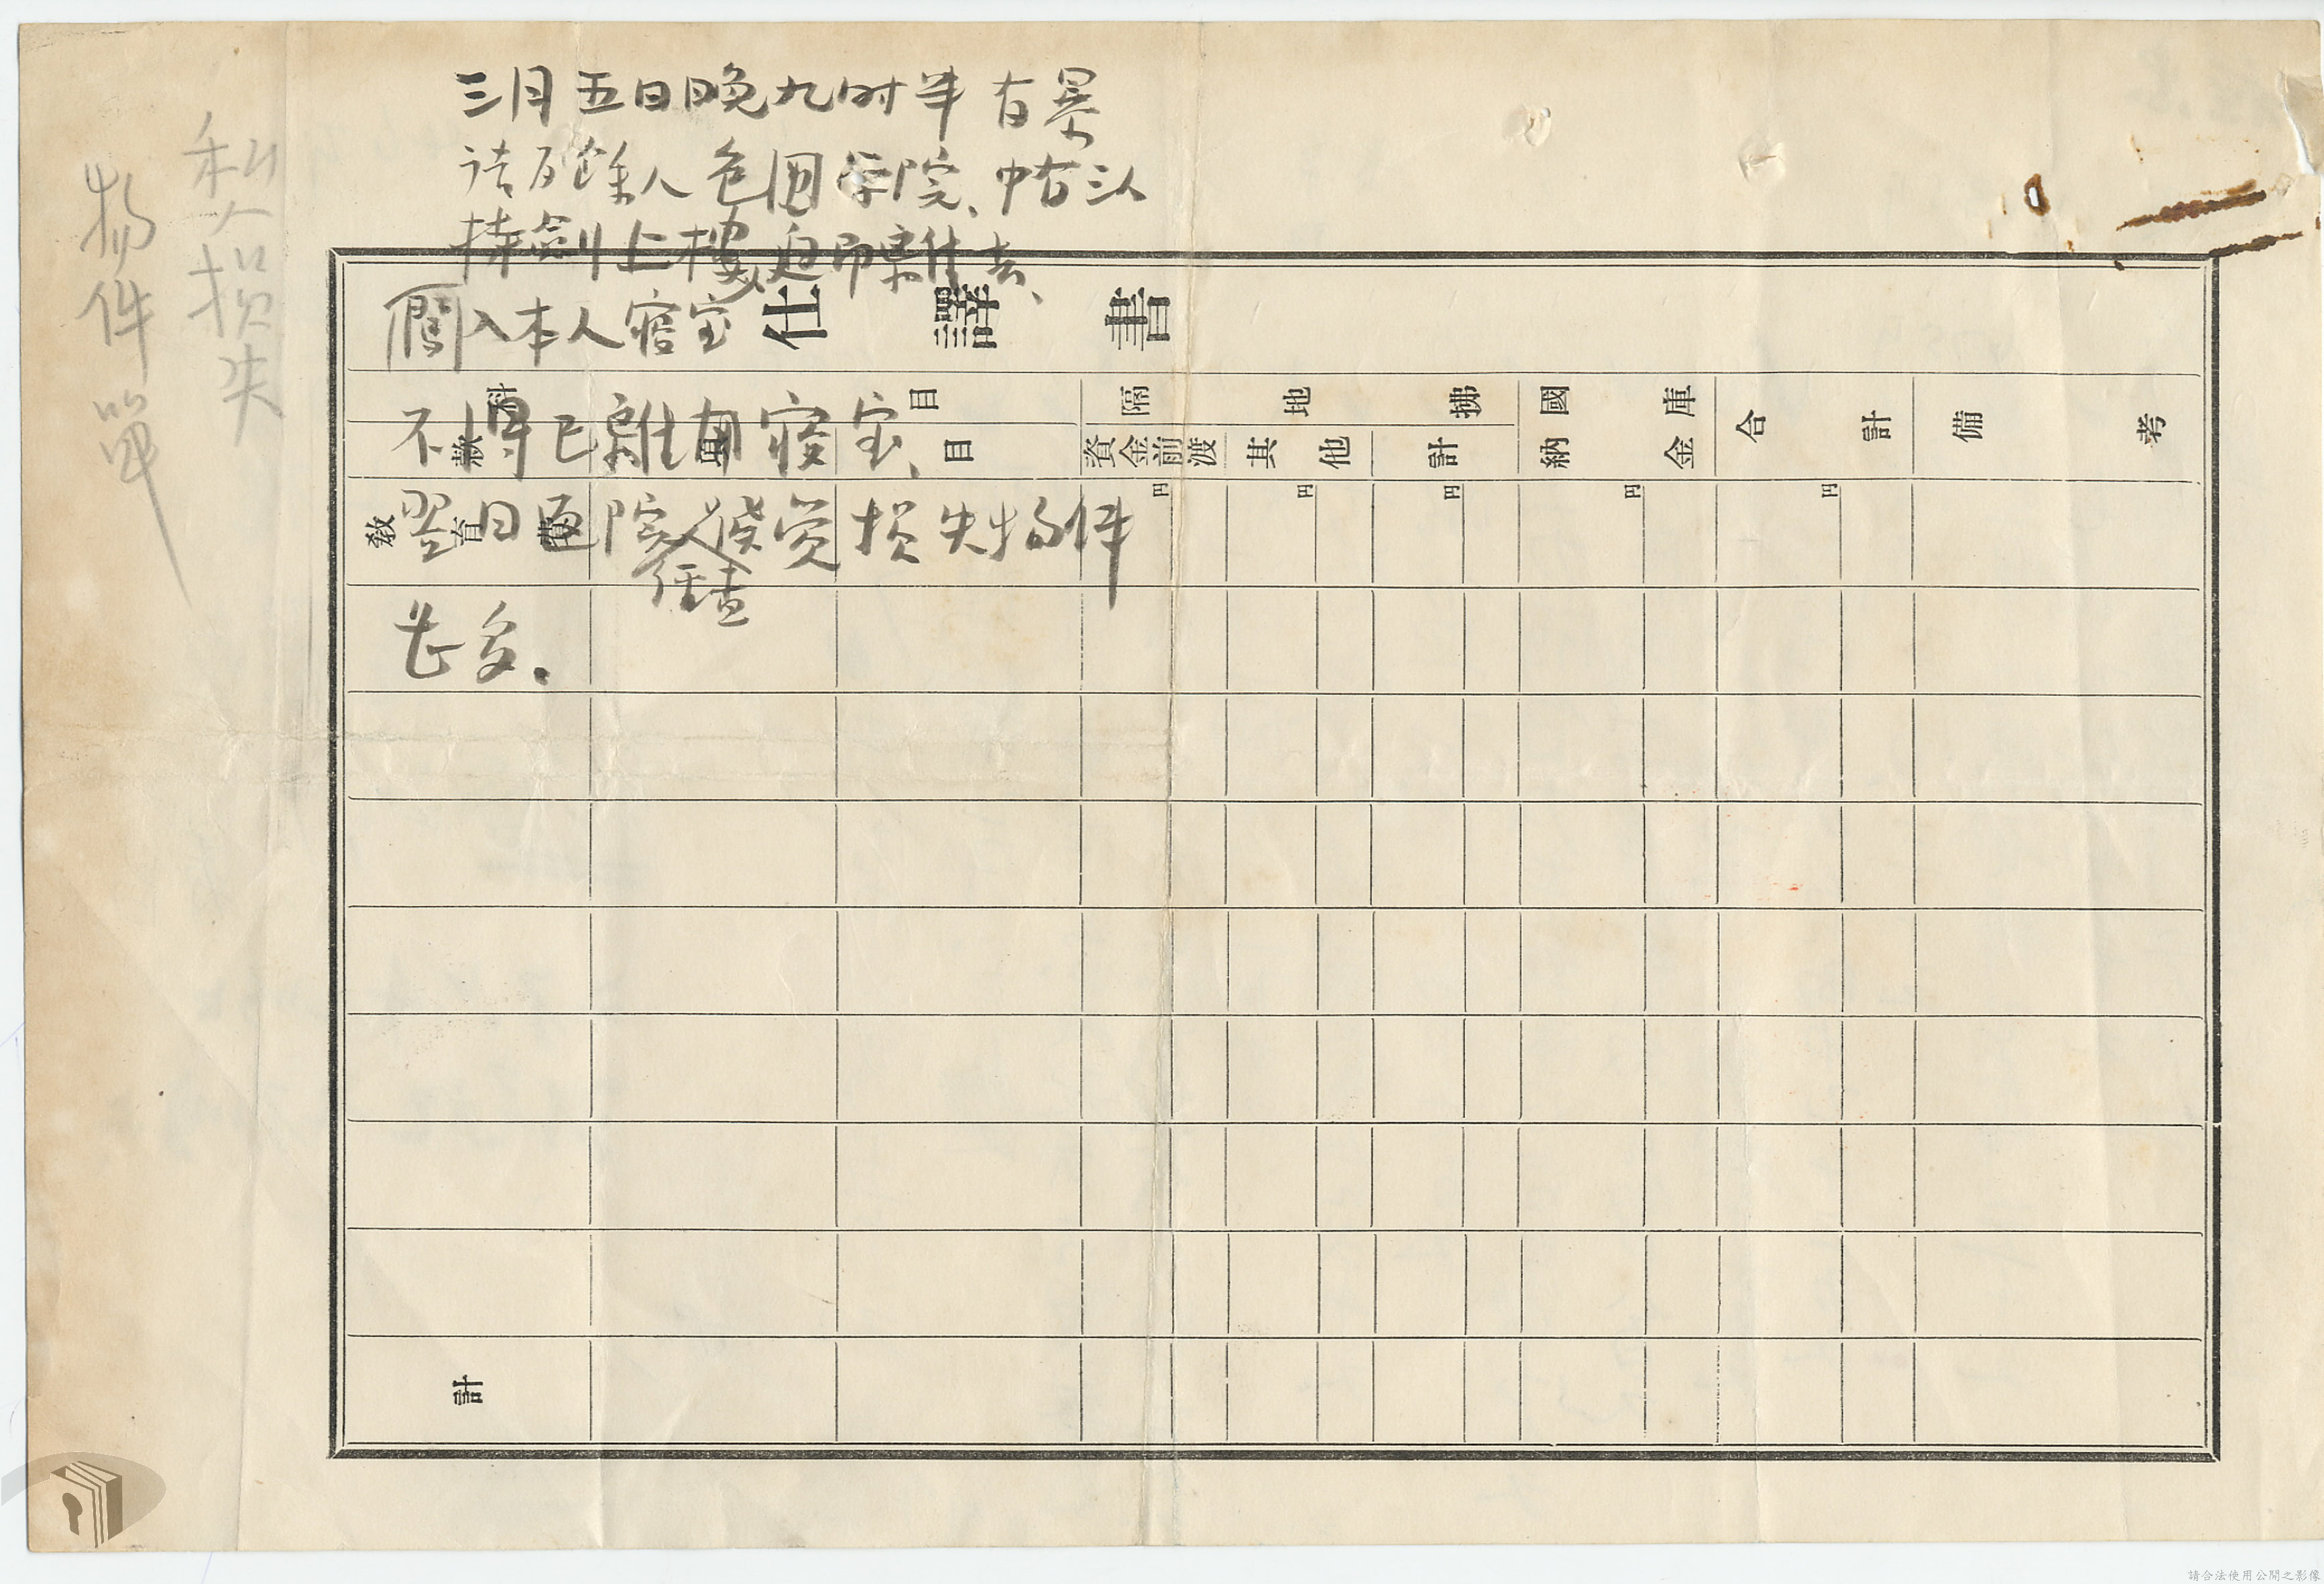 私人損失
物件單
三月五日晚九时半有暴
徒百餘人包圍学院、中有三人
持劍上樓、迫即離去、
闖入本人寢室
仕譯書
不得已離開寢室、
科目
隔地拂
國庫
納金
合計
備考
款項目
資金前渡
其他
計
円 円 円 円 円
教育費
翌日返院檢查損失物件
甚多.
計
請合法使用公開之影像